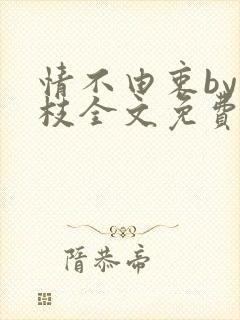 情不由衷by
枝全文免费
隋恭帝